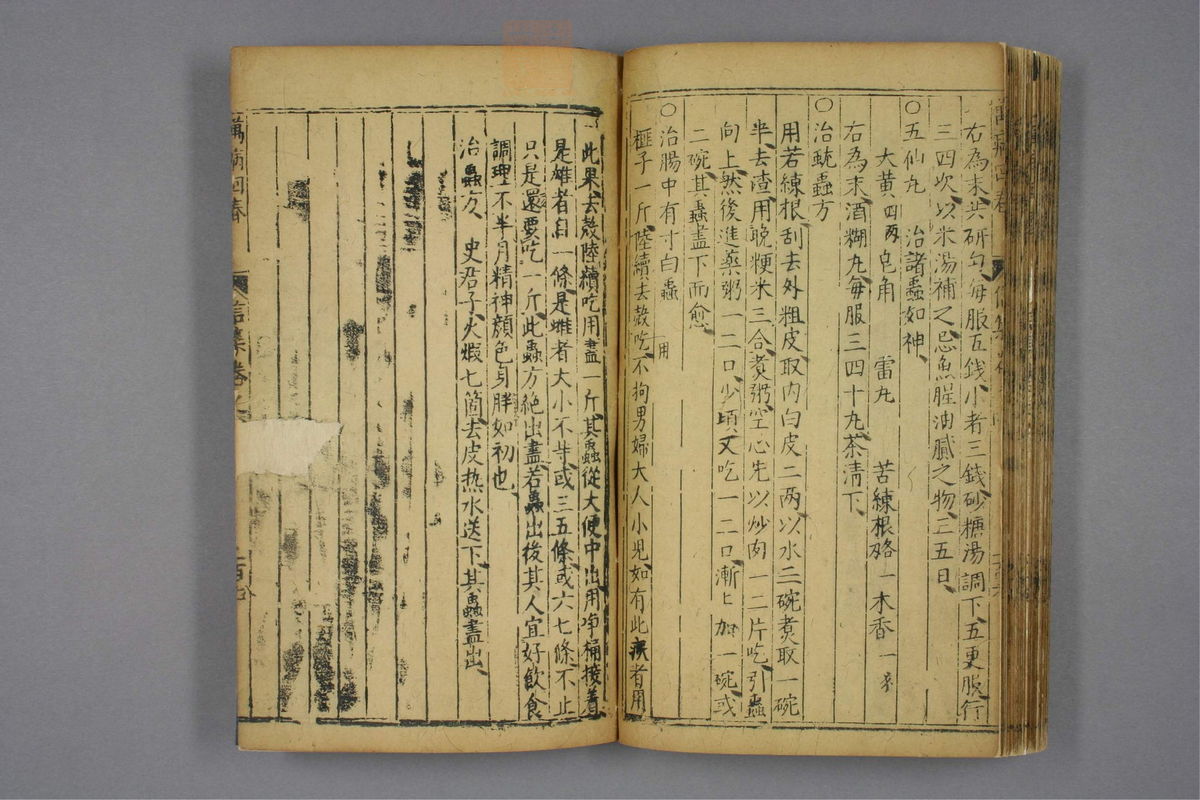 右為末共研勻每服五錢小者三錢砂糖湯調下五更服行
三四次以米湯補之忌魚腥油膩之物三五日
〇五仙丸 治諸蟲如神
大黃四兩皂角 雷丸 苦練根各一木香一
右為末酒糊丸每服三四十丸茶清下
〇治蟲方
用苦練根刮去外粗皮取內白皮二两以水三碗煑取一碗
半去渣用晚粳米三合煑粥空心先以炒肉一二片吃引蟲
向上然後進藥粥一二口少頃又吃一二口漸〻加一碗或
二碗其蟲盡下而愈
〇治腸中有寸白蟲 用
榧子一斤陸續去殼吃不拘男婦大人小兒如有此疾者用
此果去殼陸續吃用盡一斤其蟲從大便中出用净桶接着
是雄者自一條是雌者大小不等或三五條或六七條不止
只是還要吃一斤此蟲方絕出盡若蟲出後其人宜好飲食
調理不半月精神顔色身胖如初也
治蟲方 史君子火煆七箇去皮热水送下其蟲盡出
萬病回春 信集卷